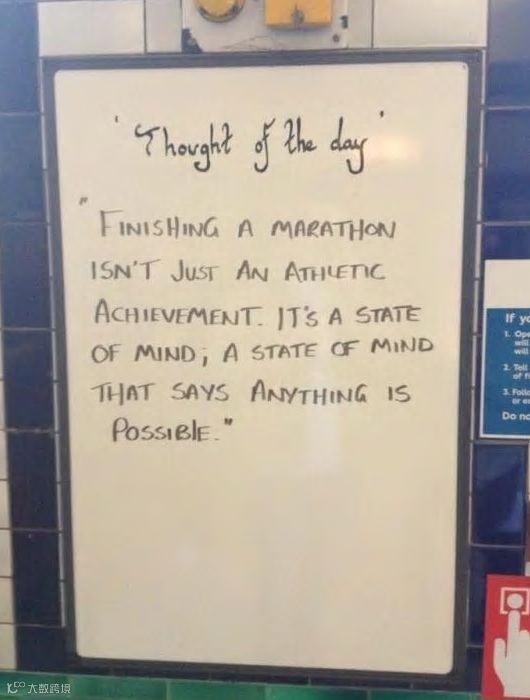 'Thought of the day'
"FINISHING A MARATHON
ISN'T JUST AN ATHLETIC
ACHIEVEMENT. IT'S A STATE
OF MIND; A STATE OF MIND
THAT SAYS ANYTHING IS
POSSIBLE."
If yo
1. Ope
will
will
2. Tell
of fi
3. Follo
or e
Do no
大数跨境